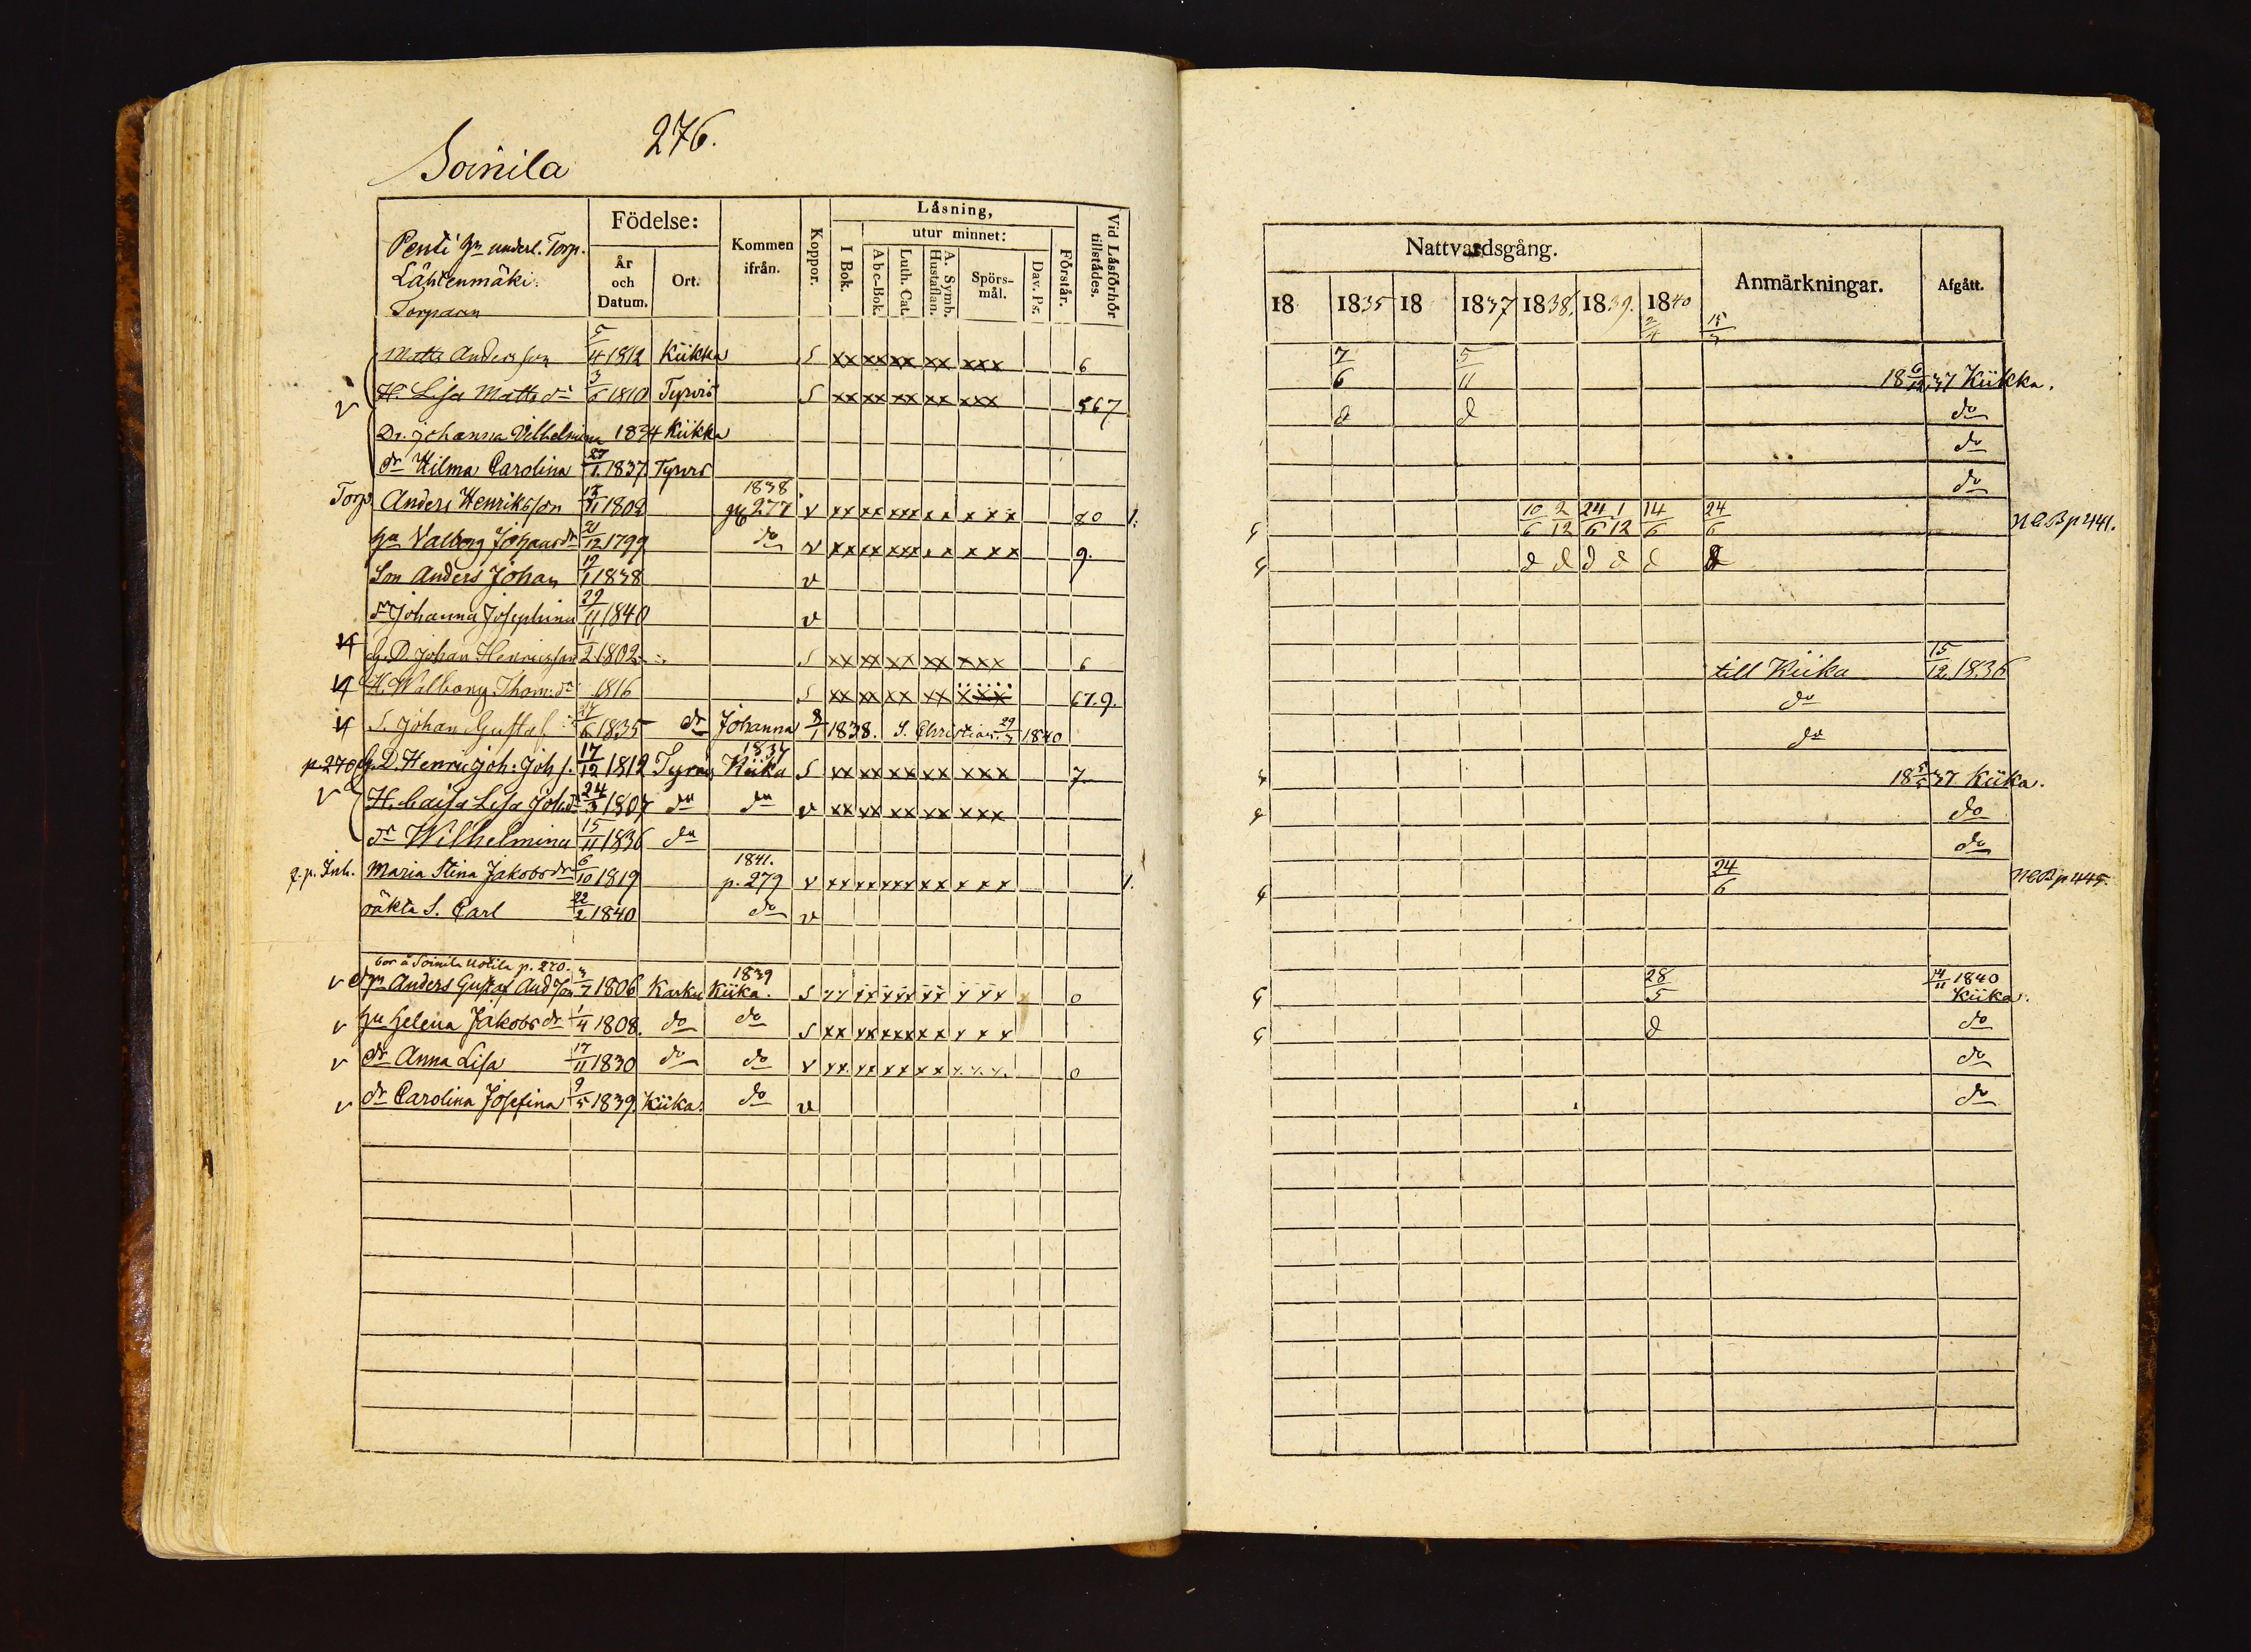 276.
Soinila
Födelse:
Läsning,
utur minnet:
Kommen ifrån.
Koppor.
I Bok.
Abc-Bok.
Luth. Cat.
A. Symb. Hustaflan.
Spörs-mål.
Dav. Ps.
Förstår.
Vid Läsförhör tillstädes.
År och Datum.
Ort.
Penti hn underl. Torp.
Lähtenmäki.
Torparen
Matts Andersson 5/4 1812 Kiikka S xx xx xx xx xxx 6
H. Lisa Mattsdr 3/6 1810 Tyrvis S xx xx xx xx xxx 567
Dr. Johanna Vilhelmina 1834 Kiikka
dr Hilma Carolina 27/1 1837 Tyrvis
Torp Anders Henriksson 1802 1838 277 v xx xx xxx xx xxx 80 1.
hu Valborg Johansdr 21/12 1799 do v xx xx xxx xx xxx 9.
Son Anders Johan 19/1 1838 v
dr Johanna Josephina 29/11 1840 v
G.D. Johan Henricsson 11/2 1802 S xx xx xx xx xxx 6
H. Walborg Thom:dr 1816 S xx xx xx xx xxx 67.9.
S. Johan Gustaf 27/6 1835 dr Johanna 8/1 1838. S. Christian 29/3 1840
p 270 G.D. Henric Joh: Joh s. 17/12 1812 Tyrvis 1837 Kiika S xx xx xx xx xxx 7
H. Caisa Lisa Joh.dr 24/3 1807 do do v xx xx xx xx xxx
dr Wilhelmina 15/11 1836 do
q.p. Inh. Maria Stina Jakobsdr 6/10 1819 1841. p. 279 v xx xx xxx xx xxx 1.
oäkta S. Carl 22/2 1840 do v
bor å Soinila Uotila p. 270.
Anders Gustaf Ands son 3/7 1806 Karku 1839 Kiika. S xx xx xxx xx xxx 0
hu Helena Jakobsdr 1/4 1808. do do S xx xx xxx xx xxx
dr Anna Lisa 17/11 1830 do do v xx xx xx xx xxx 0
dr Carolina Josefina 9/5 1839 Kiika. do v
Nattvardsgång.
Anmärkningar.
Afgått.
18 1835 18 1837 1838. 1839. 1840
2/4 15/3
7/6 5/11 18 6/12 37 Kiikka.
d d do
do
do
10/6 2/12 24/6 1/12 14/6 24/6 NCB p 441.
d d d d d d
till Kiika 15/12 1836
do
do
18 5/5 37 Kiika.
do
do
24/6 NCB p 445.
28/5 14/11 1840 Kiika.
d do
do
do